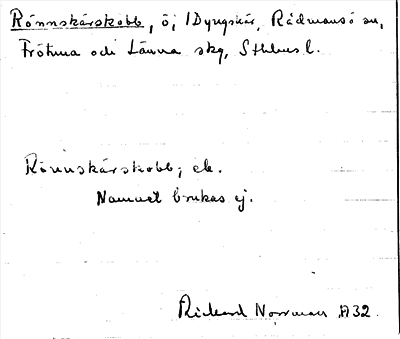 Rönnskärskobb, ö, i Dyngskär, Rådmansö sn,
Frötuna och Länna skg, Sthlms l.
Rönnskärskobb, ek.
Namnet brukas ej.
Rickard Norrman 1932.